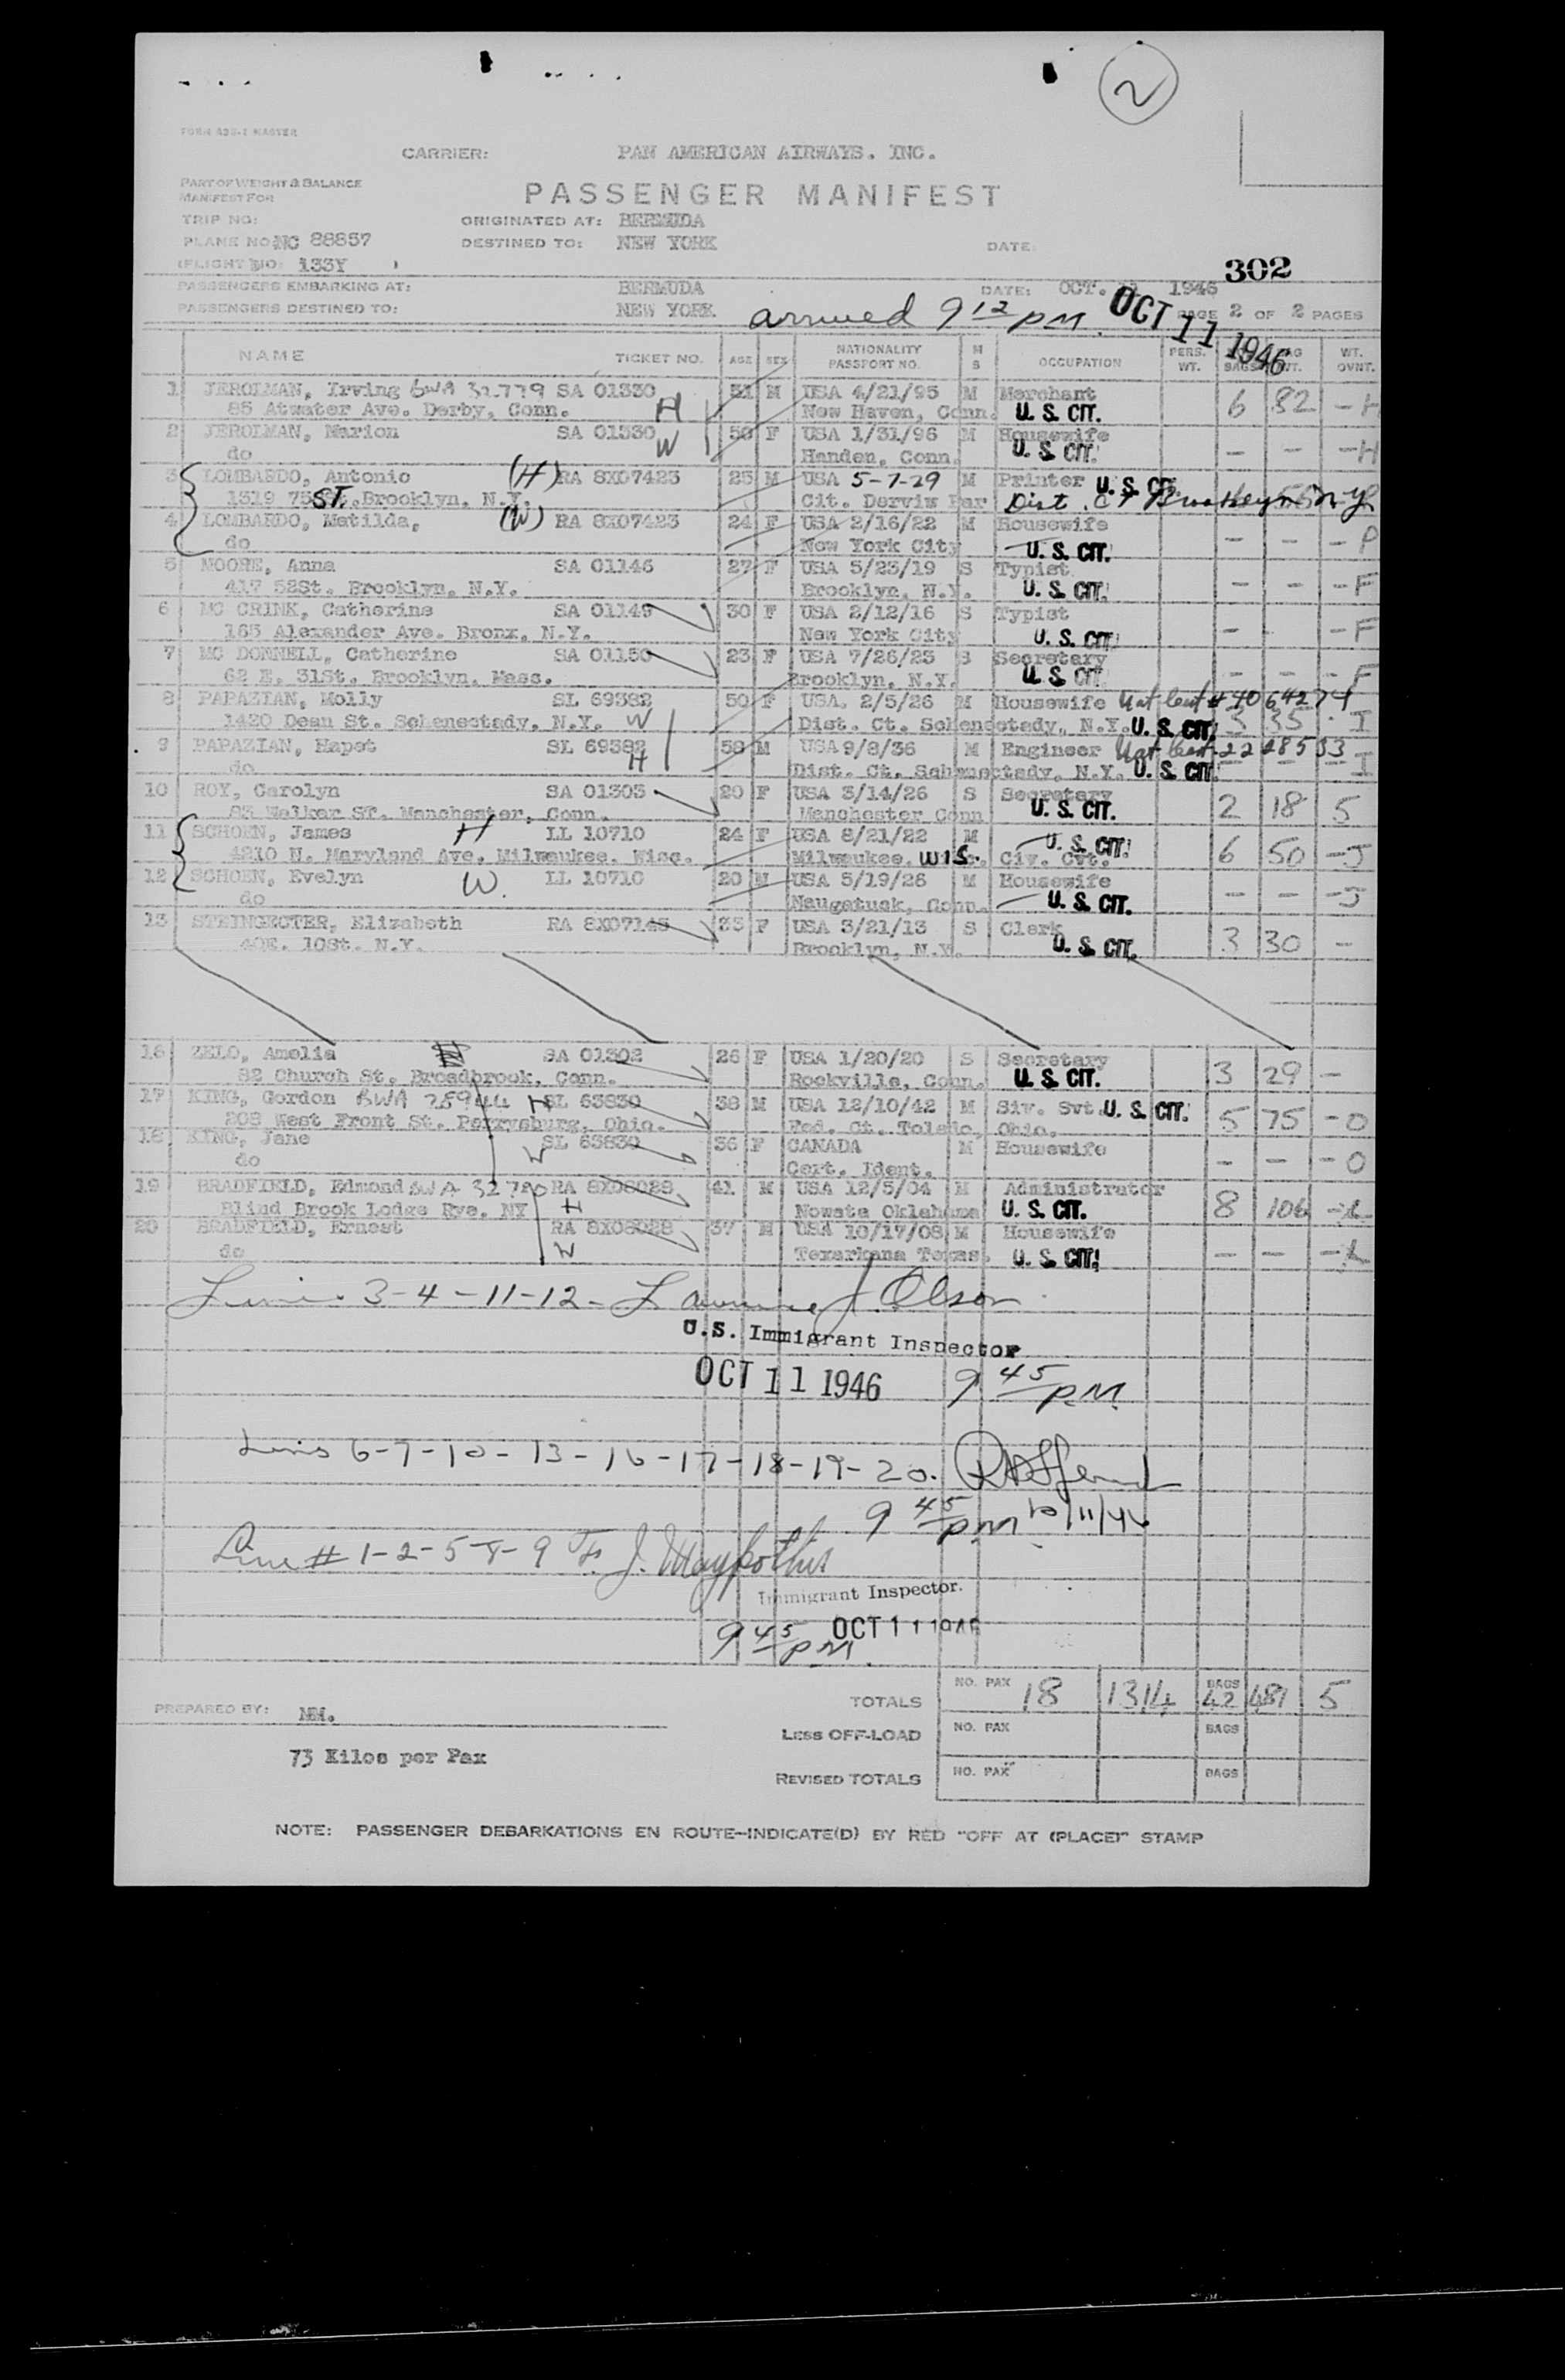 2
FORM 423-1 MASTER
CARRIER: PAN AMERICAN AIRWAYS. INC.
PART OF WEIGHT & BALANCE
MANIFEST FOR
PASSENGER MANIFEST
TRIP NO: ORIGINATED AT: BERMUDA
PLANE NO: NC 88857 DESTINED TO: NEW YORK DATE:
(FLIGHT NO: 133Y )
302
PASSENGERS EMBARKING AT: BERMUDA DATE: OCT. 1946
PASSENGERS DESTINED TO: NEW YORK arrived 9 12 PM OCT 11 1946 PAGE 2 OF 2 PAGES
NAME TICKET NO. AGE SEX NATIONALITY PASSPORT NO. M S OCCUPATION PERS. WT. BAGS WT. OVNT.
1 JEROLMAN, Irving BWA 32779 SA 01330 H 51 M USA 4/21/95 M Merchant 6 82 - H
85 Atwater Ave. Derby, Conn. New Haven, Conn. U. S. CIT.
2 JEROLMAN, Marion SA 01330 W 50 F USA 1/31/96 M Housewife - - - H
do Hamden, Conn. U. S. CIT.
3 LOMBARDO, Antonio (H) RA 8X07423 25 M USA 5-7-29 M Printer U. S. CIT.
1519 75 ST. Brooklyn, N.Y. Cit. Deriv Par Dist. Ct Brooklyn N.Y.
4 LOMBARDO, Matilda, (W) RA 8X07423 24 F USA 2/16/22 M Housewife - - - P
do New York City U. S. CIT.
5 MOORE, Anna SA 01146 27 F USA 5/23/19 S Typist - - - F
417 52St. Brooklyn, N.Y. Brooklyn, N.Y. U. S. CIT.
6 MC CRINK, Catherine SA 01149 30 F USA 2/12/16 S Typist - - - F
165 Alexander Ave. Bronx, N.Y. New York City U. S. CIT.
7 MC DONNELL, Catherine SA 01150 23 F USA 7/26/23 S Secretary - - - F
62 E. 31St. Brooklyn, Mass. Brooklyn, N.Y. U. S. CIT.
8 PAPAZIAN, Molly SL 69382 50 F USA. 2/5/26 M Housewife Nat Cert # 4064274
1420 Dean St. Schenectady, N.Y. W Dist. Ct. Schenectady, N.Y. U. S. CIT. 3 35 - I
9 PAPAZIAN, Hapet SL 69382 H 58 M USA 9/8/36 M Engineer Nat Cert. 2228533
do Dist. Ct. Schenectady, N.Y. U. S. CIT. - - - I
10 ROY, Carolyn SA 01303 20 F USA 3/14/26 S Secretary 2 18 5
83 Walker ST. Manchester, Conn. Manchester Conn U. S. CIT.
11 SCHOEN, James H LL 10710 24 F USA 8/21/22 M U. S. CIT. 6 50 - J
4210 N. Maryland Ave. Milwaukee. Wisc. Milwaukee. WIS. Civ. Cvt.
12 SCHOEN, Evelyn W. LL 10710 20 M USA 5/19/26 M Housewife - - - J
do Naugatuck, Conn. U. S. CIT.
13 STEINGECTER, Elizabeth RA 8X07145 33 F USA 3/21/13 S Clerk 3 30 -
40E. 10St. N.Y. Brooklyn, N.Y. U. S. CIT.
16 ZELO, Amelia SA 01302 26 F USA 1/20/20 S Secretary 3 29 -
82 Church St. Broadbrook, Conn. Rockville, Conn. U. S. CIT.
17 KING, Gordon BWA 28944 H SL 63830 38 M USA 12/10/42 M Siv. Svt. U. S. CIT. 5 75 - O
208 West Front St. Perrysburg, Ohio. Fed. Ct. Toledo, Ohio.
18 KING, Jane W SL 63830 36 F CANADA M Housewife - - - O
do Cert. Ident.
19 BRADFIELD, Edmond BWA 32780 RA 8X08028 41 M USA 12/5/04 M Administrator 8 106 - L
Blind Brook Lodge Rye, NY H Nowata Oklahoma U. S. CIT.
20 BRADFIELD, Ernest RA 8X08028 37 M USA 10/17/08 M Housewife - - - L
do W Texarkana Texas. U. S. CIT.
Lines 3-4-11-12- Lawrence J. Olson
U.S. Immigrant Inspector
OCT 11 1946 9 45 P.M.
Lines 6-7-10-13-16-17-18-19-20.
9 45 PM 10/11/46
Line # 1-2-5-8-9 F. J.
Immigrant Inspector.
9 45 PM OCT 11 1946
TOTALS NO. PAX 18 1314 BAGS 42 481 5
PREPARED BY: NM.
LESS OFF-LOAD NO. PAX BAGS
73 Kilos per Pax
REVISED TOTALS NO. PAX BAGS
NOTE: PASSENGER DEBARKATIONS EN ROUTE—INDICATE(D) BY RED "OFF AT (PLACE)" STAMP